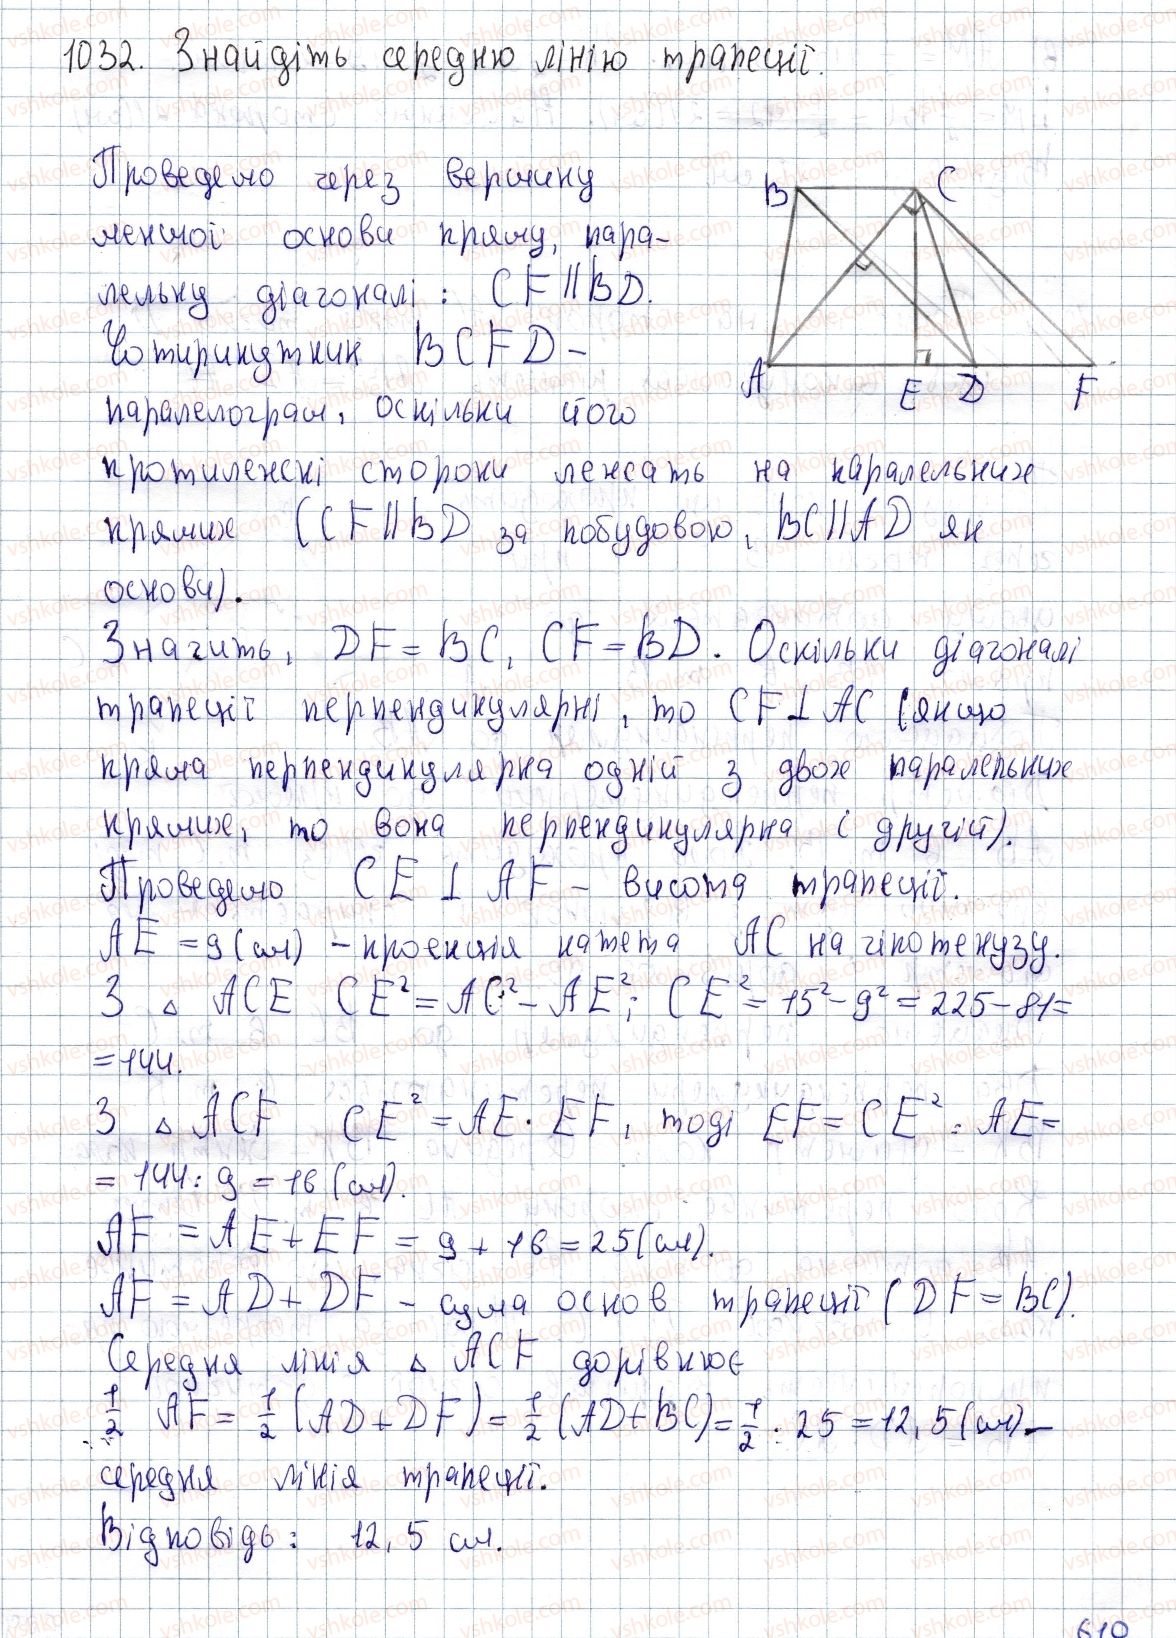 1032. Знайдіть середню лінію трапеції.
Проведемо через вершину
меншої основи пряму, пара-
лельну діагоналі: CF||BD.
Чотирикутник BCFD –
паралелограм, оскільки його
протилежні сторони лежать на паралельних
прямих (CF||BD за побудовою, BC||AD як
основи).
Значить, DF = BC, CF = BD. Оскільки діагоналі
трапеції перпендикулярні, то CF⊥AC (якщо
пряма перпендикулярна одній з двох паралельних
прямих, то вона перпендикулярна і другій).
Проведемо CE ⊥ AF – висота трапеції.
AE = 9 (см) – проекція катета AC на гіпотенузу.
З △ ACE CE² = AC² – AE²; CE² = 15² – 9² = 225 – 81 =
= 144.
З △ ACF CE² = AE · EF, тоді EF = CE² : AE =
= 144 : 9 = 16 (см).
AF = AE + EF = 9 + 16 = 25 (см).
AF = AD + DF – сума основ трапеції (DF = BC).
Середня лінія △ ACF дорівнює
1/2 AF = 1/2 (AD + DF) = 1/2 (AD + BC) = 1/2 · 25 = 12,5 (см) –
середня лінія трапеції.
Відповідь: 12,5 см.
B C
A E D F
610
vshkole.com